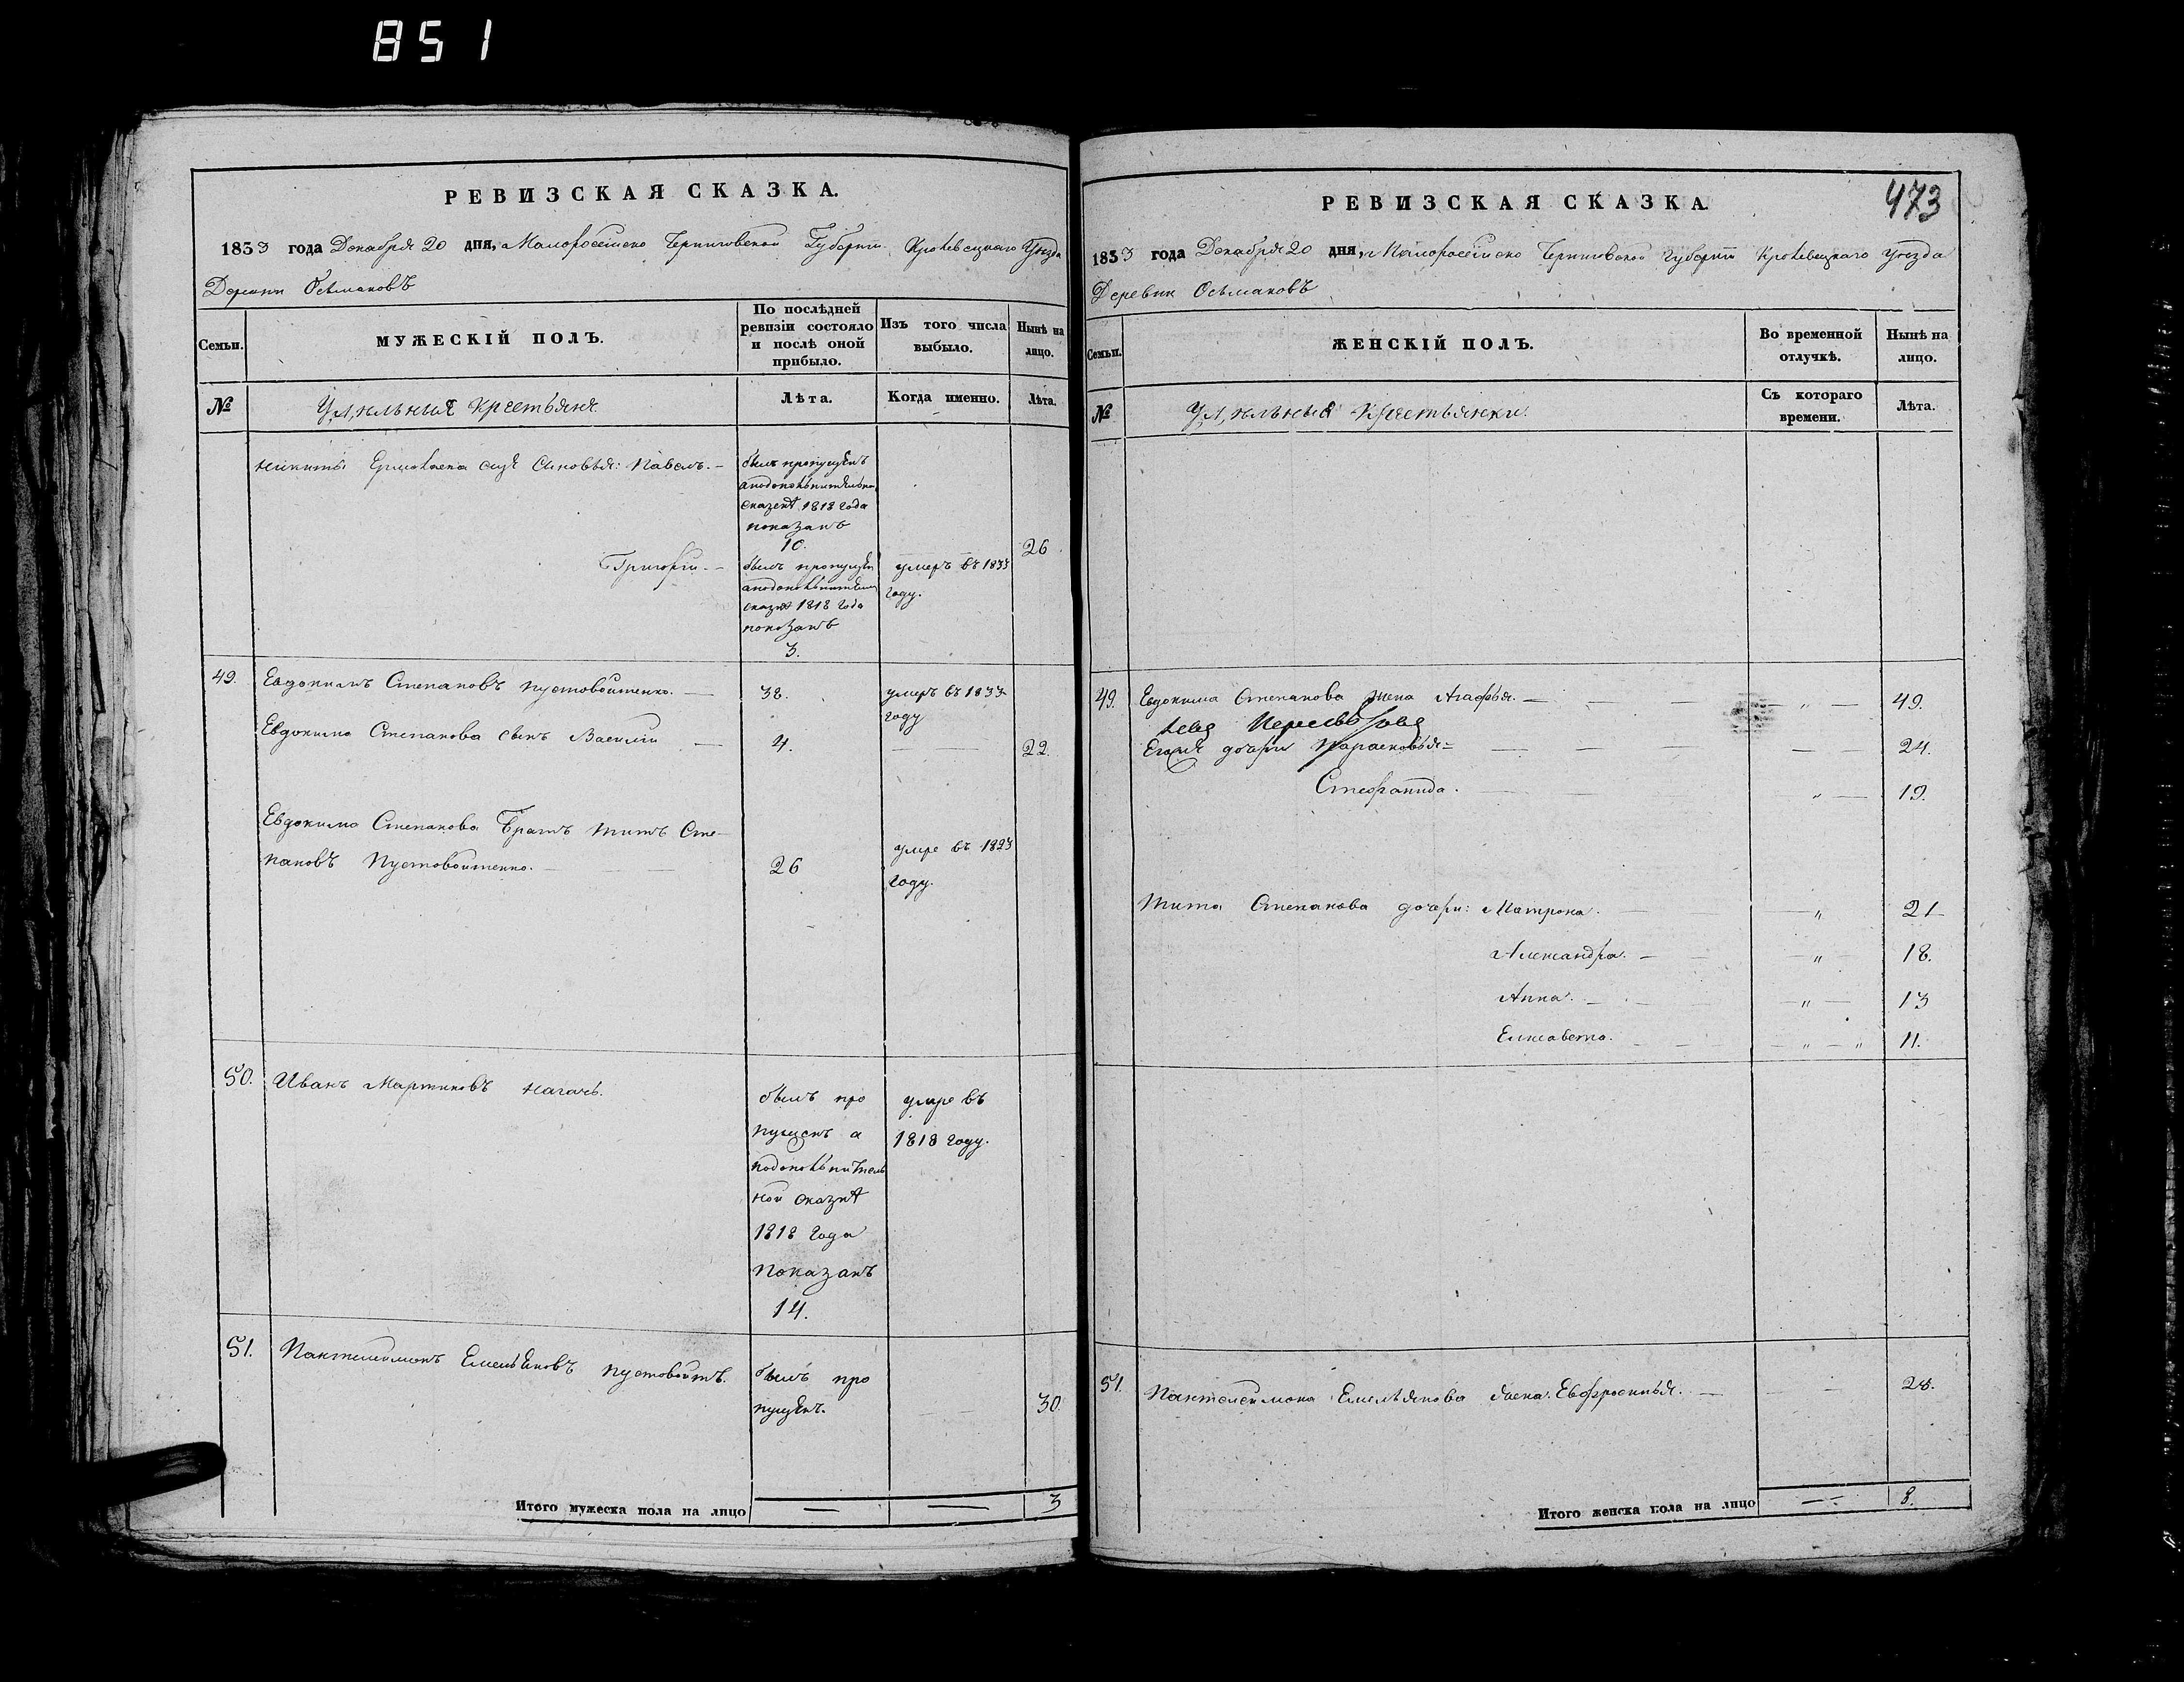 851
РЕВИЗСКАЯ СКАЗКА.
1833 года Декабря 20 дня, Малоросейско Черниговской Губернии Кролевецкаго Уезда
Деревни Осьмаковъ
Семьи.
МУЖЕСКІЙ ПОЛЪ.
По послѣдней ревизіи состояло и послѣ оной прибыло.
Изъ того числа выбыло.
Нынѣ на лицо.
№
Удѣльныя Крестьяня
Лѣта.
Когда именно.
Лѣта.
Никиты сыновья: Павелъ. —
былъ пропущенъ
сказкѣ 1818 года
показанъ
10.
26
Григорiи. —
былъ пропущен
умеръ въ 1833
году.
сказкѣ 1818 года
показанъ
3.
49. Евдокимъ Степановъ Пустовойтенко. — 38. умеръ въ 1833
году
Евдокима Степанова сынъ Василiи — 4. — 22.
Евдокима Степанова братъ Титъ Сте-
пановъ Пустовойтенко. — 26
умре въ 1823
году.
50. Иванъ Мартиновъ Нагачь.
былъ про
пущенъ а
нои сказкѣ
1818 года
показанъ
14.
умре въ
1818 году.
51. Пантелеимонъ Емельяновъ Пустовойтъ.
былъ про
пущенъ.
30.
Итого мужеска пола на лицо — — 3
473
РЕВИЗСКАЯ СКАЗКА.
1833 года Декабря 20 дня, Малоросейско Черниговской Губернiи Кролевецкаго Уезда
Деревни Осьмаковъ
Семьи.
ЖЕНСКІЙ ПОЛЪ.
Во временной отлучкѣ.
Нынѣ на лицо.
№
Удѣльныя Крестьянки.
Съ котораго времени.
Лѣта.
49. Евдокима Степанова жена Агафья. — " — 49.
Егоже дочери Парасковья — — 24.
Стефанида. " — 19.
Тита Степанова дочери: Матрона. — " 21
Александра. — — " 18.
Анна. — — " — 13
Елисавета. — " — " 11.
51. Пантелеимона Емельянова жена Евфросинья. — 28.
Итого женска пола на лицо — 8.